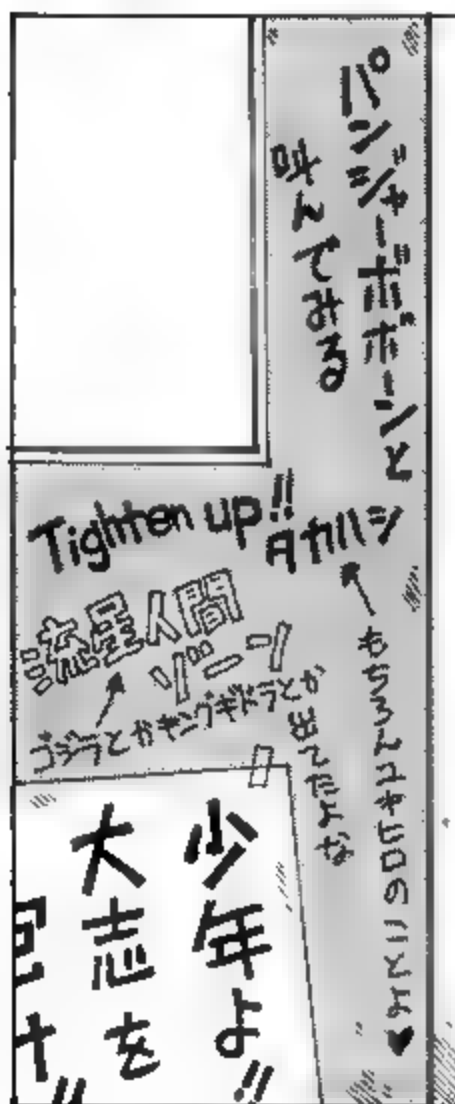 パンジャーボボーンと
呼んでみる
Tighten up!!
タカハシ
流星人間
ゾーン
ゴジラとかキングギドラとか
出てたよな
少年よ
大志を
!!